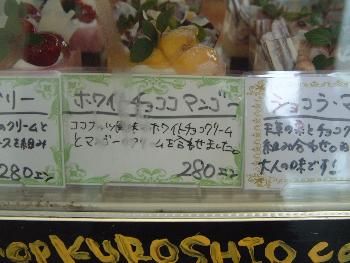 ベリー
クリームと
ースを組み
280エン
ホワイトチョココマンゴー
ココナッツ風味のホワイトチョコクリーム
とマンゴークリームを合わせました。
280エン
ショコラ・マ
栗とチョコク
組み合わせの
大人の味です!
OPKUROSHIO CO